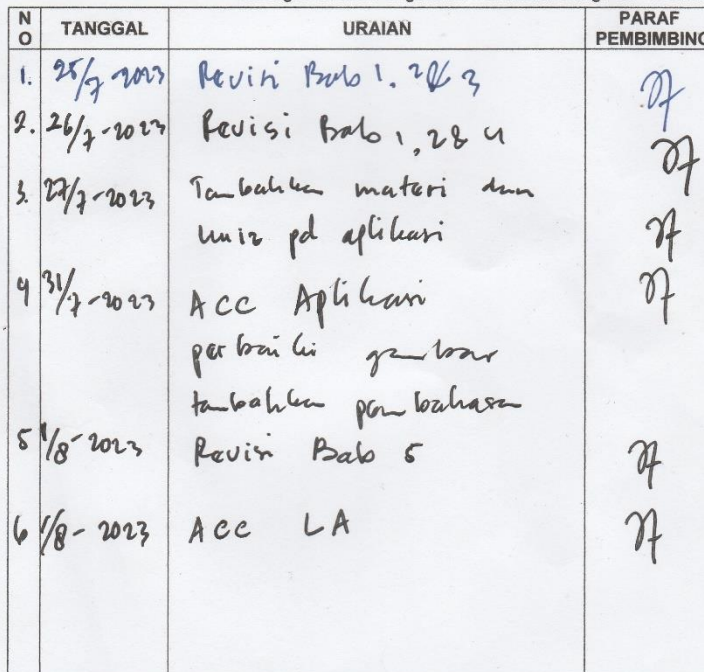 NO TANGGAL URAIAN PARAF PEMBIMBING
1. 25/7-2023 Revisi Bab 1. 2 & 3
2. 26/7-2023 Revisi Bab 1, 2 & 4
3. 27/7-2023 Tambahkan materi dan
kuiz pd aplikasi
4 31/7-2023 ACC Aplikasi
perbaiki gambar
tambahkan pembahasan
5 1/8-2023 Revisi Bab 5
6 1/8-2023 ACC LA